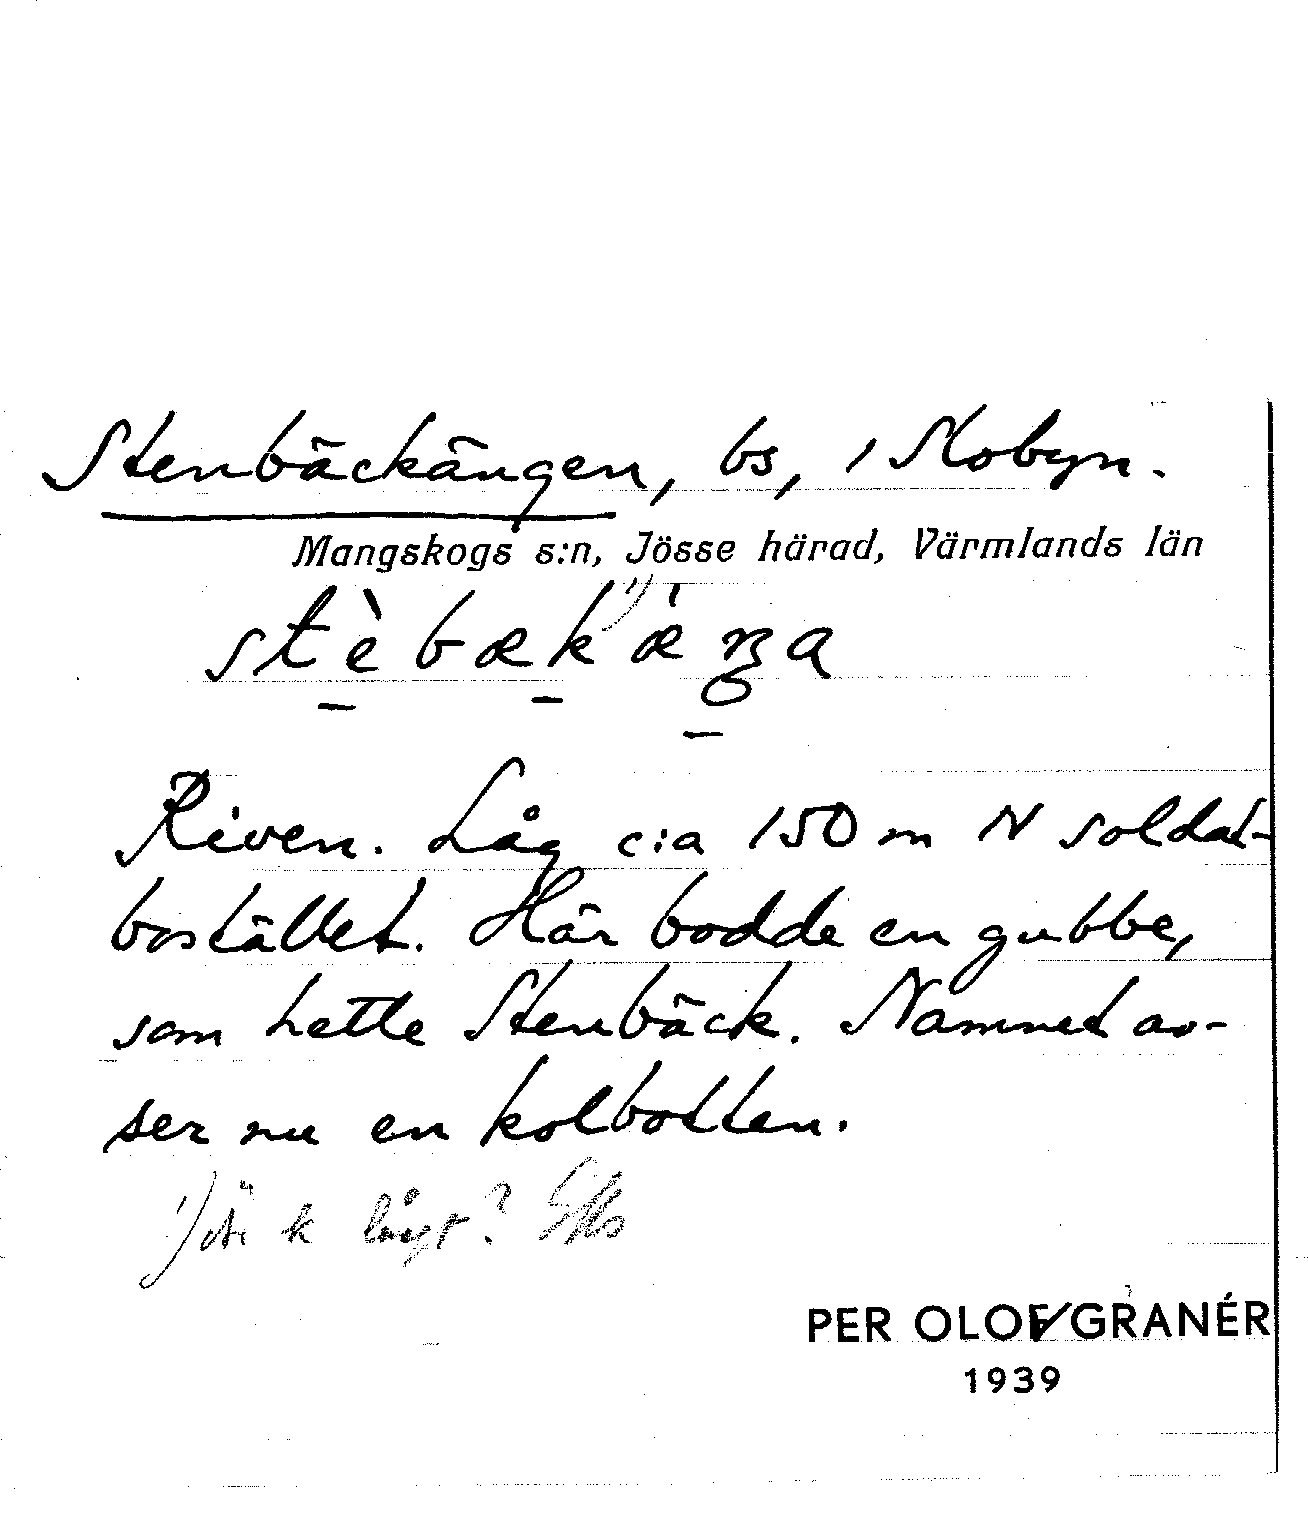 Stenbäckängen, bs, i Slobyn.
Mangskogs s:n, Jösse härad, Värmlands län
Riven. Låg c:a 150 m N soldat-
bostället. Här bodde en gubbe,
som hette Stenbäck. Namnet av-
ser nu en kolbotten.
1) är k långt?
PER OLOF GRANÉR
1939